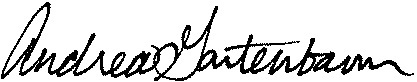 Andrea Gartenbaum